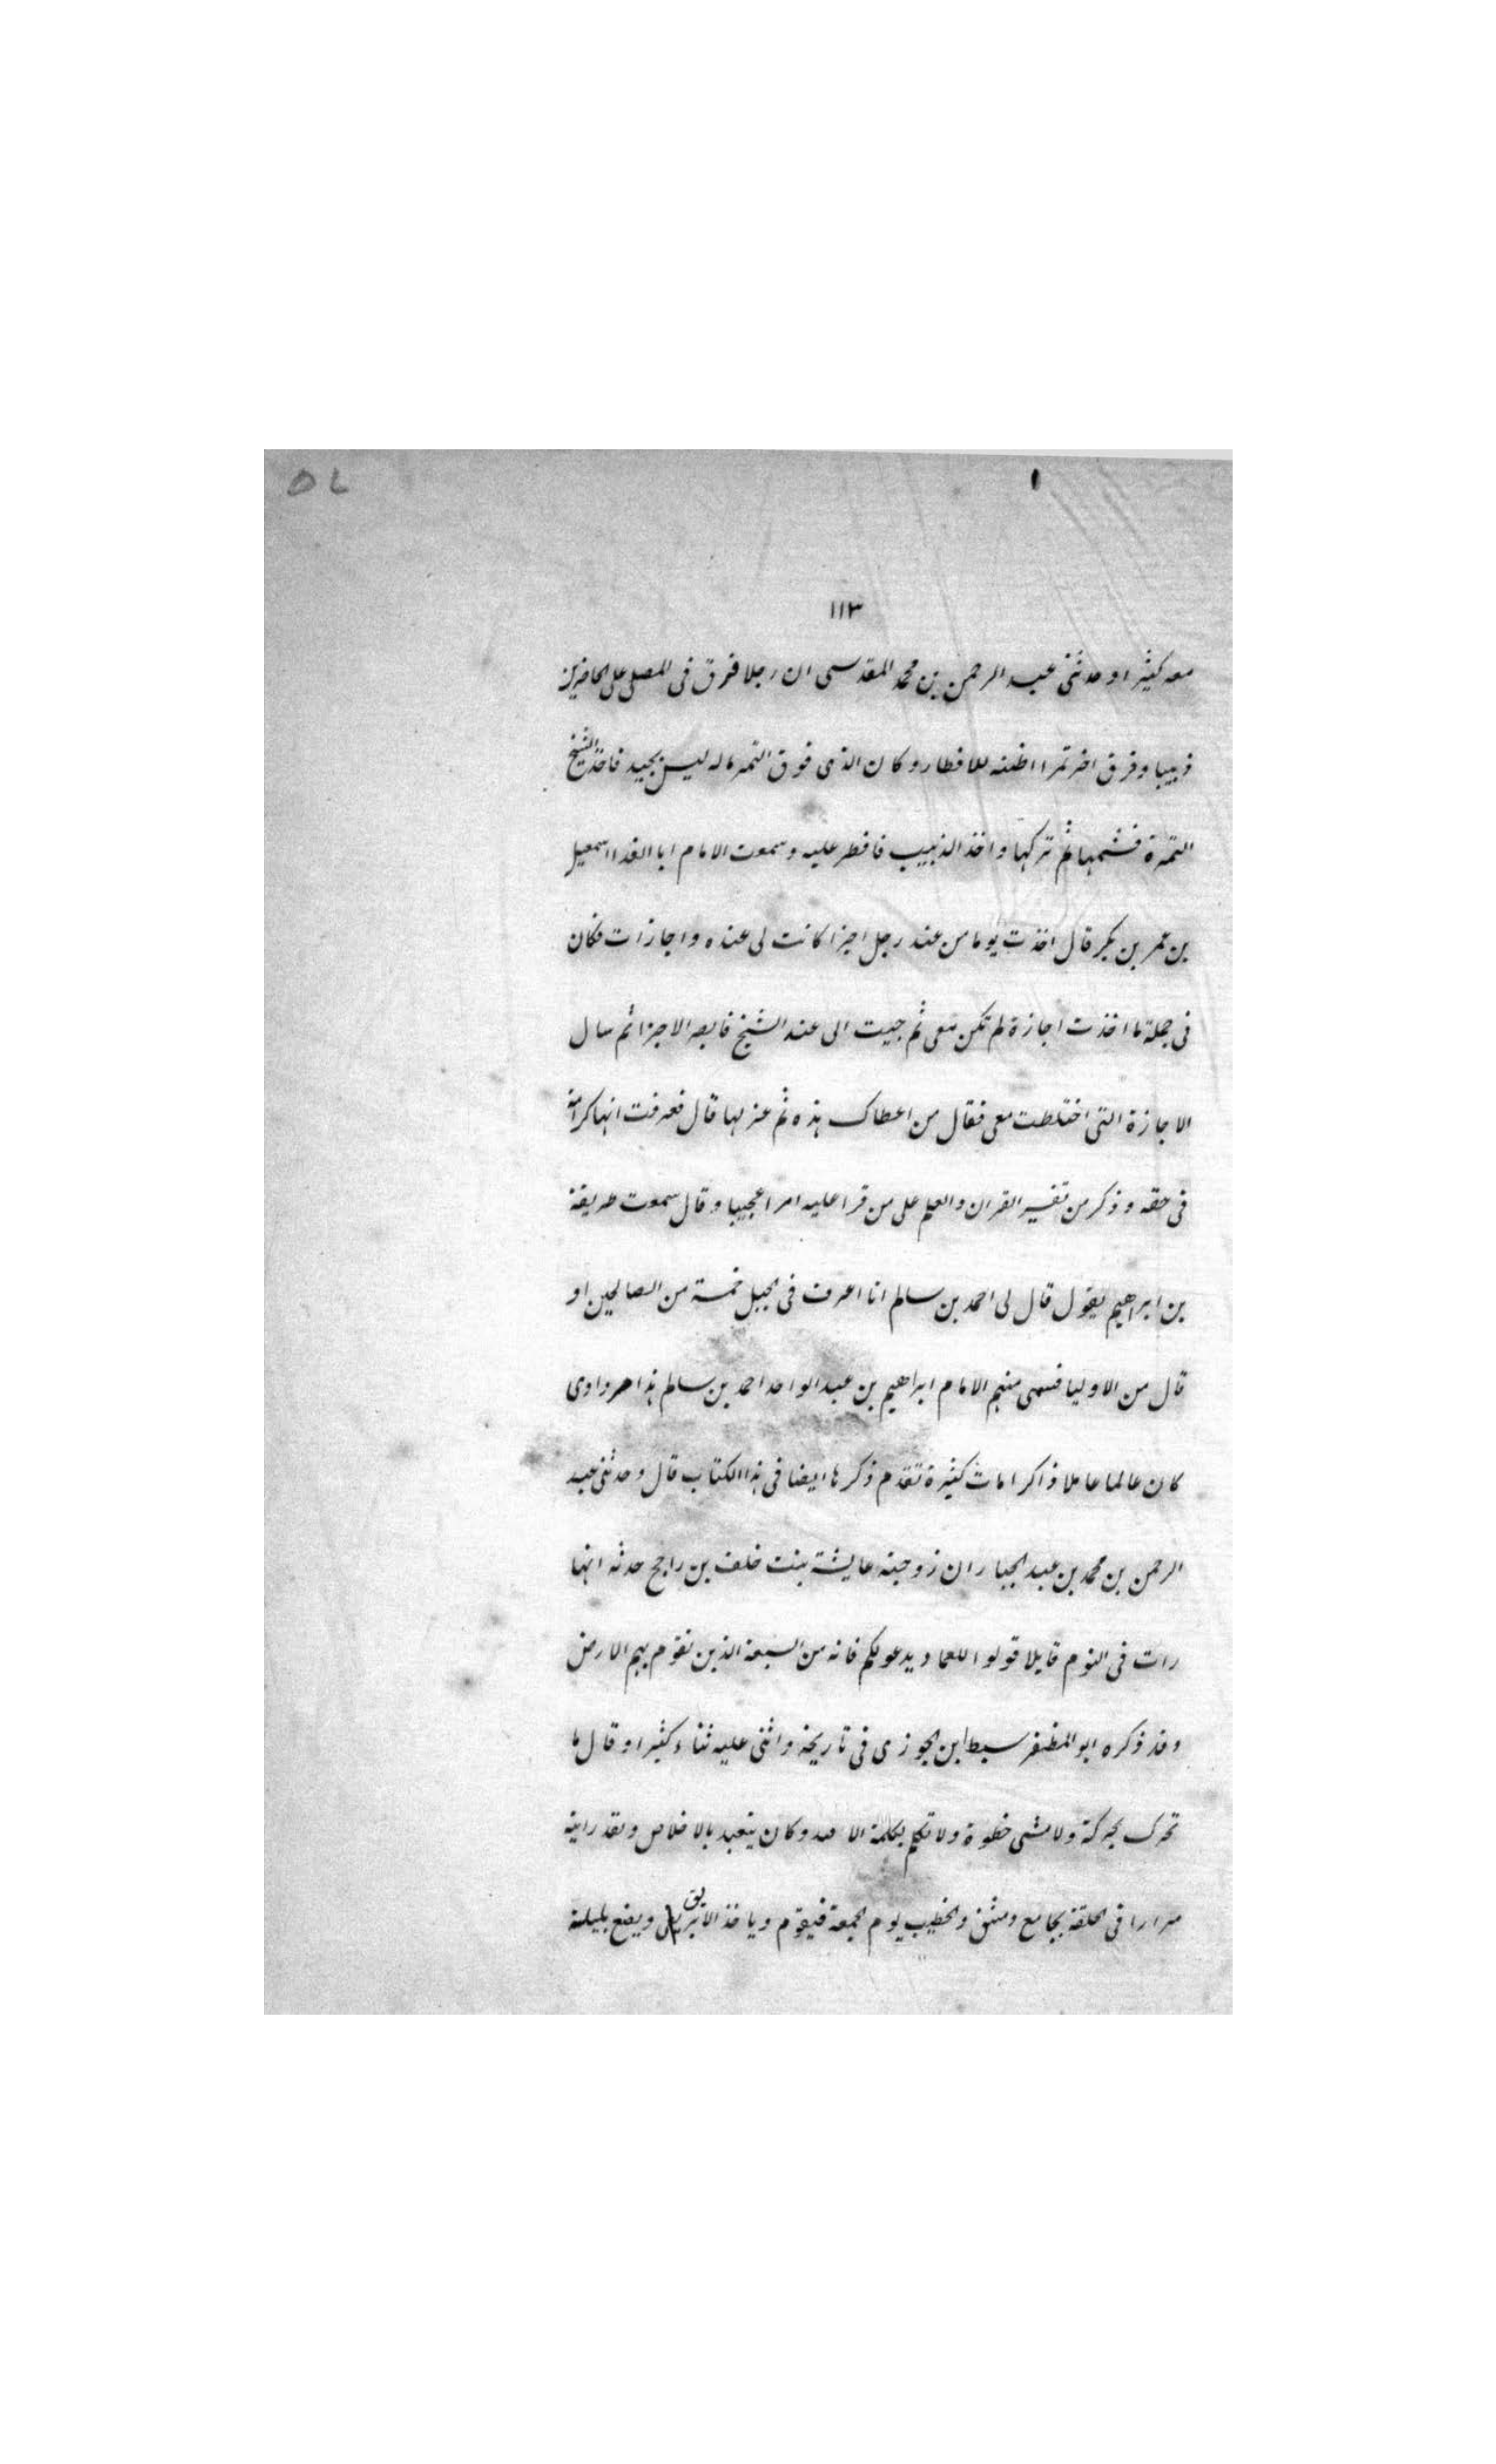 ١١٣
معه كثيرا وحدثنى عبد الرحمن بن محمد المقدسى ان رجلا فرق فى المصلى على الحاضرين
زبيبا وفرق اخر تمرا اظنه للافطار وكان الذى فوق التمر ماله ليس بجيد فاخذ الشيخ
التمرة فشمها ثم تركها واخذ الذبيب فافطر عليه وسمعت الامام ابا الفدا اسمعيل
بن عمر بن بكر قال اخذت يوما من عند رجل اجزا كانت لى عنده واجازات فكان
فى جملة ما اخذت اجازة لم تكن معى ثم جيت الى عند الشيخ فابصر الاجزا ثم سال
الاجازة التى اختلطت معى فقال من اعطاك هذه ثم عزلها قال فعرفت انها كرامة
فى حقه وذكر من تفسير القران والعلم على من قرا عليه امرا عجيبا وقال سمعت طريفة
بن ابراهيم يقول قال لى احمد بن سالم انا اعرف فى الجبل خمسة من الصالحين او
قال من الاوليا فسمى منهم الامام ابراهيم بن عبد الواحد احمد بن سالم هذا مرداوى
كان عالما عاملا ذا كرامات كثيرة تقدم ذكرها ايضا فى هذا الكتاب قال وحدثنى عبد
الرحمن بن محمد بن عبد الجبار ان زوجته عايشة بنت خلف بن راجح حدثه انها
رات فى النوم قايلا قولوا للعماد يدعو لكم فانه من السبعة الذين تقوم بهم الارض
وقد ذكره ابو المظفر سبط ابن الجوزى فى تاريخه واثنى عليه ثناء كثيرا وقال ما
تحرك بحركة ولا مشى خطوة ولا تكلم بكلمة الا لله وكان يتعبد بالاخلاص ولقد رايته
مرارا فى الحلقة بجامع دمشق والخطيب يوم الجمعة فيقوم وياخذ الابريق ويضع بلبلته